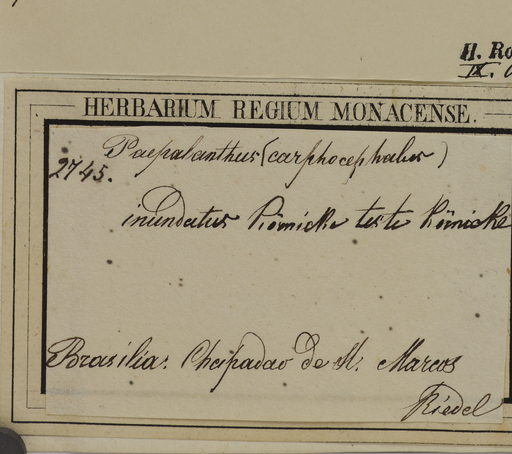 H. Ro
IX.
HERBARIUM REGIUM MONACENSE.
Paepalanthus (carphocephalus)
2745.
inundatus Körnicke teste Körnicke
Brasilia: Chapadao de St. Marcos
Riedel